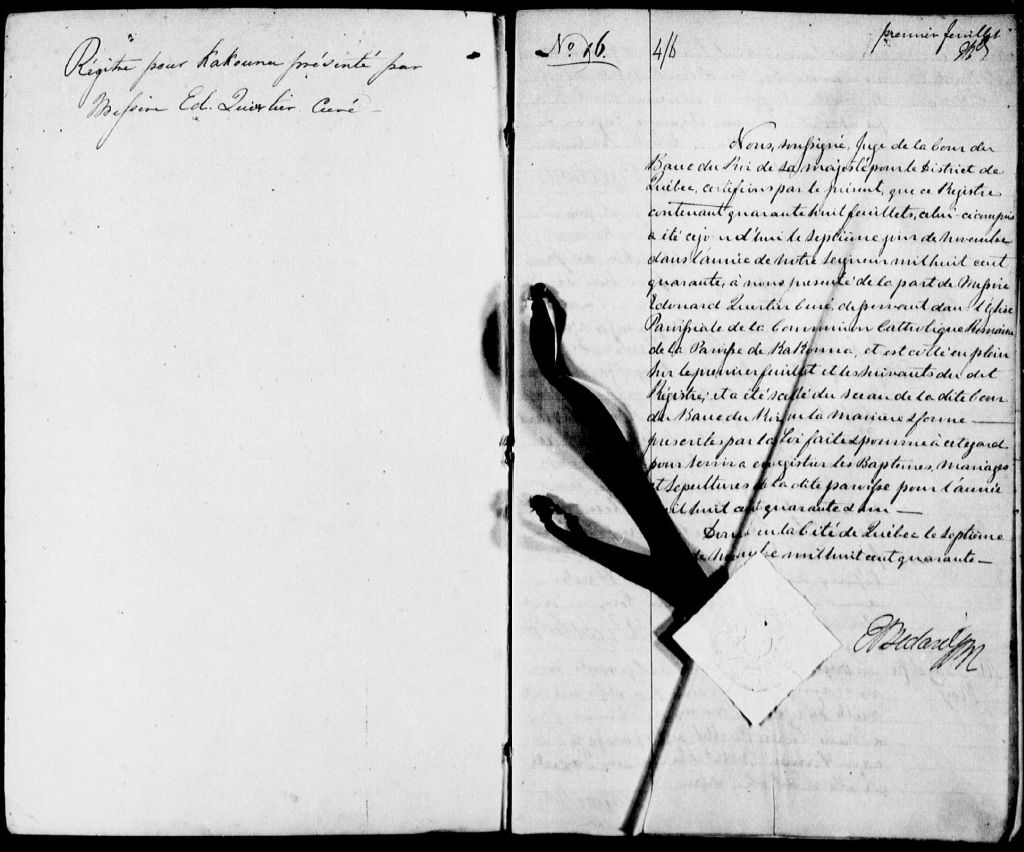 Régitre pour Kakouna présenté par
Messire Ed. Quertier Curé –
premier feuillet
No 96.
4/6
Nous, soussigné, Juge de la Cour du
Banc du Roi de sa majesté pour le District de
Québec, certifions par le présent, que ce Régistre
contenant quarante huit feuillets, celui-ci compris
a été cejourd'hui le septième jour de Novembre
dans l'année de notre Seigneur mil huit cent
quarante, à nous présenté de la part de Messire
Edouard Quertier Curé, desservant dans l'Eglise
Paroissiale de la Communion Catholique Romaine
de la Paroisse de KaKouna, et est cotté en plein
sur le premier feuillet et les suivants du dit
Régistre; et a été scellé du sceau de la dite Cour
du Banc du Roi en la manière & forme —
prescrites par la Loi faite & pourvue à cet egard
pour servir a enregistrer les Baptêmes, Mariages
et Sépultures de la dite paroisse pour l'année
mil huit cent quarante & un —
Donné en la Cité de Québec le septième
de Novembre mil huit cent quarante —
Bedard